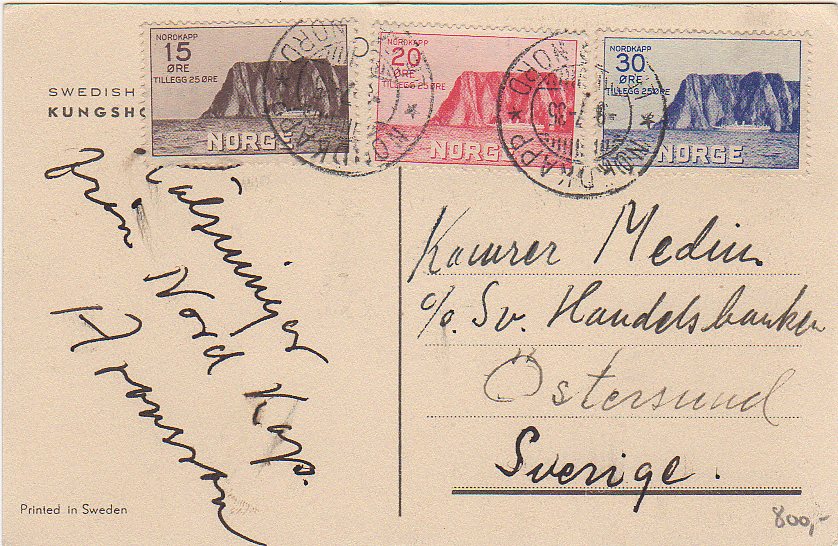 NORDKAPP
15
ØRE
TILLEGG 25 ØRE
NORGE
NORDKAPP
20
ØRE
TILLEGG 25 ØRE
NORG
NORDKAPP
30
ØRE
TILLEGG 25 ØRE
NORGE
NORDKAPP
NORD
NORDKAPP
NORD
-9-7-38
SWEDISH
KUNGSHO
Hälsningar
från Nord Kap.
Aronsson
Kamrer Medin
c/o. Sv. Handelsbanken
Östersund
Sverige.
Printed in Sweden
800,-